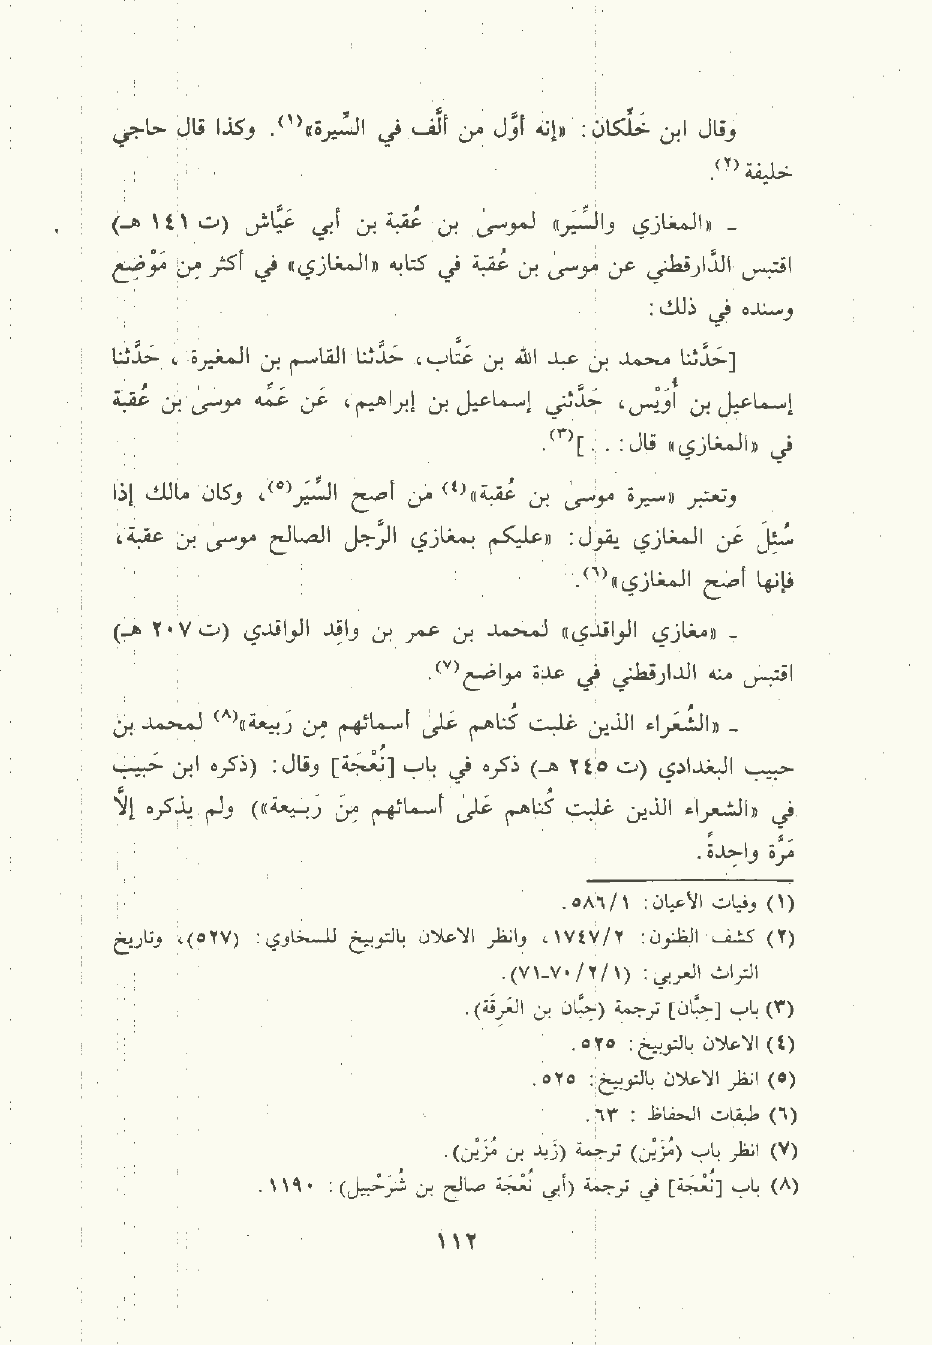 وقال ابن خَلِّكان: «إنه أوَّل من ألَّف في السِّيرة»(١). وكذا قال حاجي
خليفة(٢).
ـ «المغازي والسِّيَر» لموسىٰ بن عُقبة بن أبي عَيَّاش (ت ١٤١ هـ)
اقتبس الدَّارقطني عن موسىٰ بن عُقبة في كتابه «المغازي» في أكثر مِن مَوْضِع
وسنده في ذلك:
[حَدَّثنا محمد بن عبد الله بن عَتَّاب، حَدَّثنا القاسم بن المغيرة، حَدَّثنا
إسماعيل بن أُوَيْس، حَدَّثني إسماعيل بن إبراهيم، عَن عَمِّه موسىٰ بن عُقبة
في «المغازي» قال: . . .](٣).
وتعتبر «سيرة موسىٰ بن عُقبة»(٤) من أصح السِّيَر(٥)، وكان مالك إذا
سُئِلَ عَن المغازي يقول: «عليكم بمغازي الرَّجل الصالح موسىٰ بن عقبة،
فإنها أصح المغازي»(٦).
ـ «مغازي الواقدي» لمحمد بن عمر بن واقِد الواقدي (ت ٢٠٧ هـ)
اقتبس منه الدارقطني في عدة مواضع(٧).
ـ «الشُّعَراء الذين غلبت كُناهم عَلىٰ أسمائهم مِن رَبيعة»(٨) لمحمد بن
حبيب البغدادي (ت ٢٤٥ هـ) ذكره في باب [نُعْجَة] وقال: (ذكره ابن حَبيب
في «الشعراء الذين غلبت كُناهم عَلىٰ أسمائهم مِنَ رَبـيعة») ولم يذكره إلاَّ
مَرَّة واحِدةً.
(١) وفيات الأعيان: ٥٨٦/١.
(٢) كشف الظنون: ١٧٤٧/٢، وانظر الاعلان بالتوبيخ للسخاوي: (٥٢٧)، وتاريخ
التراث العربي: (٧٠/٢/١-٧١).
(٣) باب [حِبَّان] ترجمة (حِبَّان بن العَرِقَة).
(٤) الاعلان بالتوبيخ: ٥٢٥.
(٥) انظر الاعلان بالتوبيخ: ٥٢٥.
(٦) طبقات الحفاظ : ٦٣.
(٧) انظر باب (مُزَيْن) ترجمة (زَيد بن مُزَيْن).
(٨) باب [نُعْجَة] في ترجمة (أبي نُعْجَة صالح بن شُرَحْبيل): ١١٩٠.
١١٢